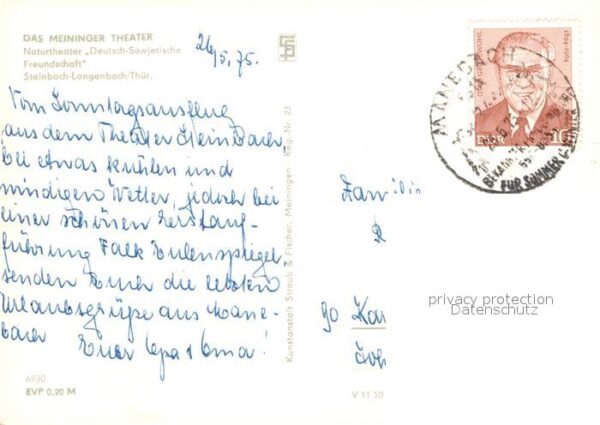 DAS MEININGER THEATER
Naturtheater „Deutsch-Sowjetische
Freundschaft"
Steinbach-Langenbach/Thür.
26/5.75.
Vom Sonntagsausflug
aus dem Theater Steinbach,
bei etwas kühlen und
windigen Wetter, jedoch bei
einer schönen Erstauf-
führung Falk Eulenspiegel,
senden Euch die letzten
Urlaubsgrüße aus Mane-
bach Euer Opa + Oma!
6930
EVP 0,20 M
Kunstanstalt Straub & Fischer, Meiningen Reg.-Nr. 23
V 11 50
Familie
R
90 Kar
MANEBACH
FÜR SOMMER
DDR 10
privacy protection
Datenschutz